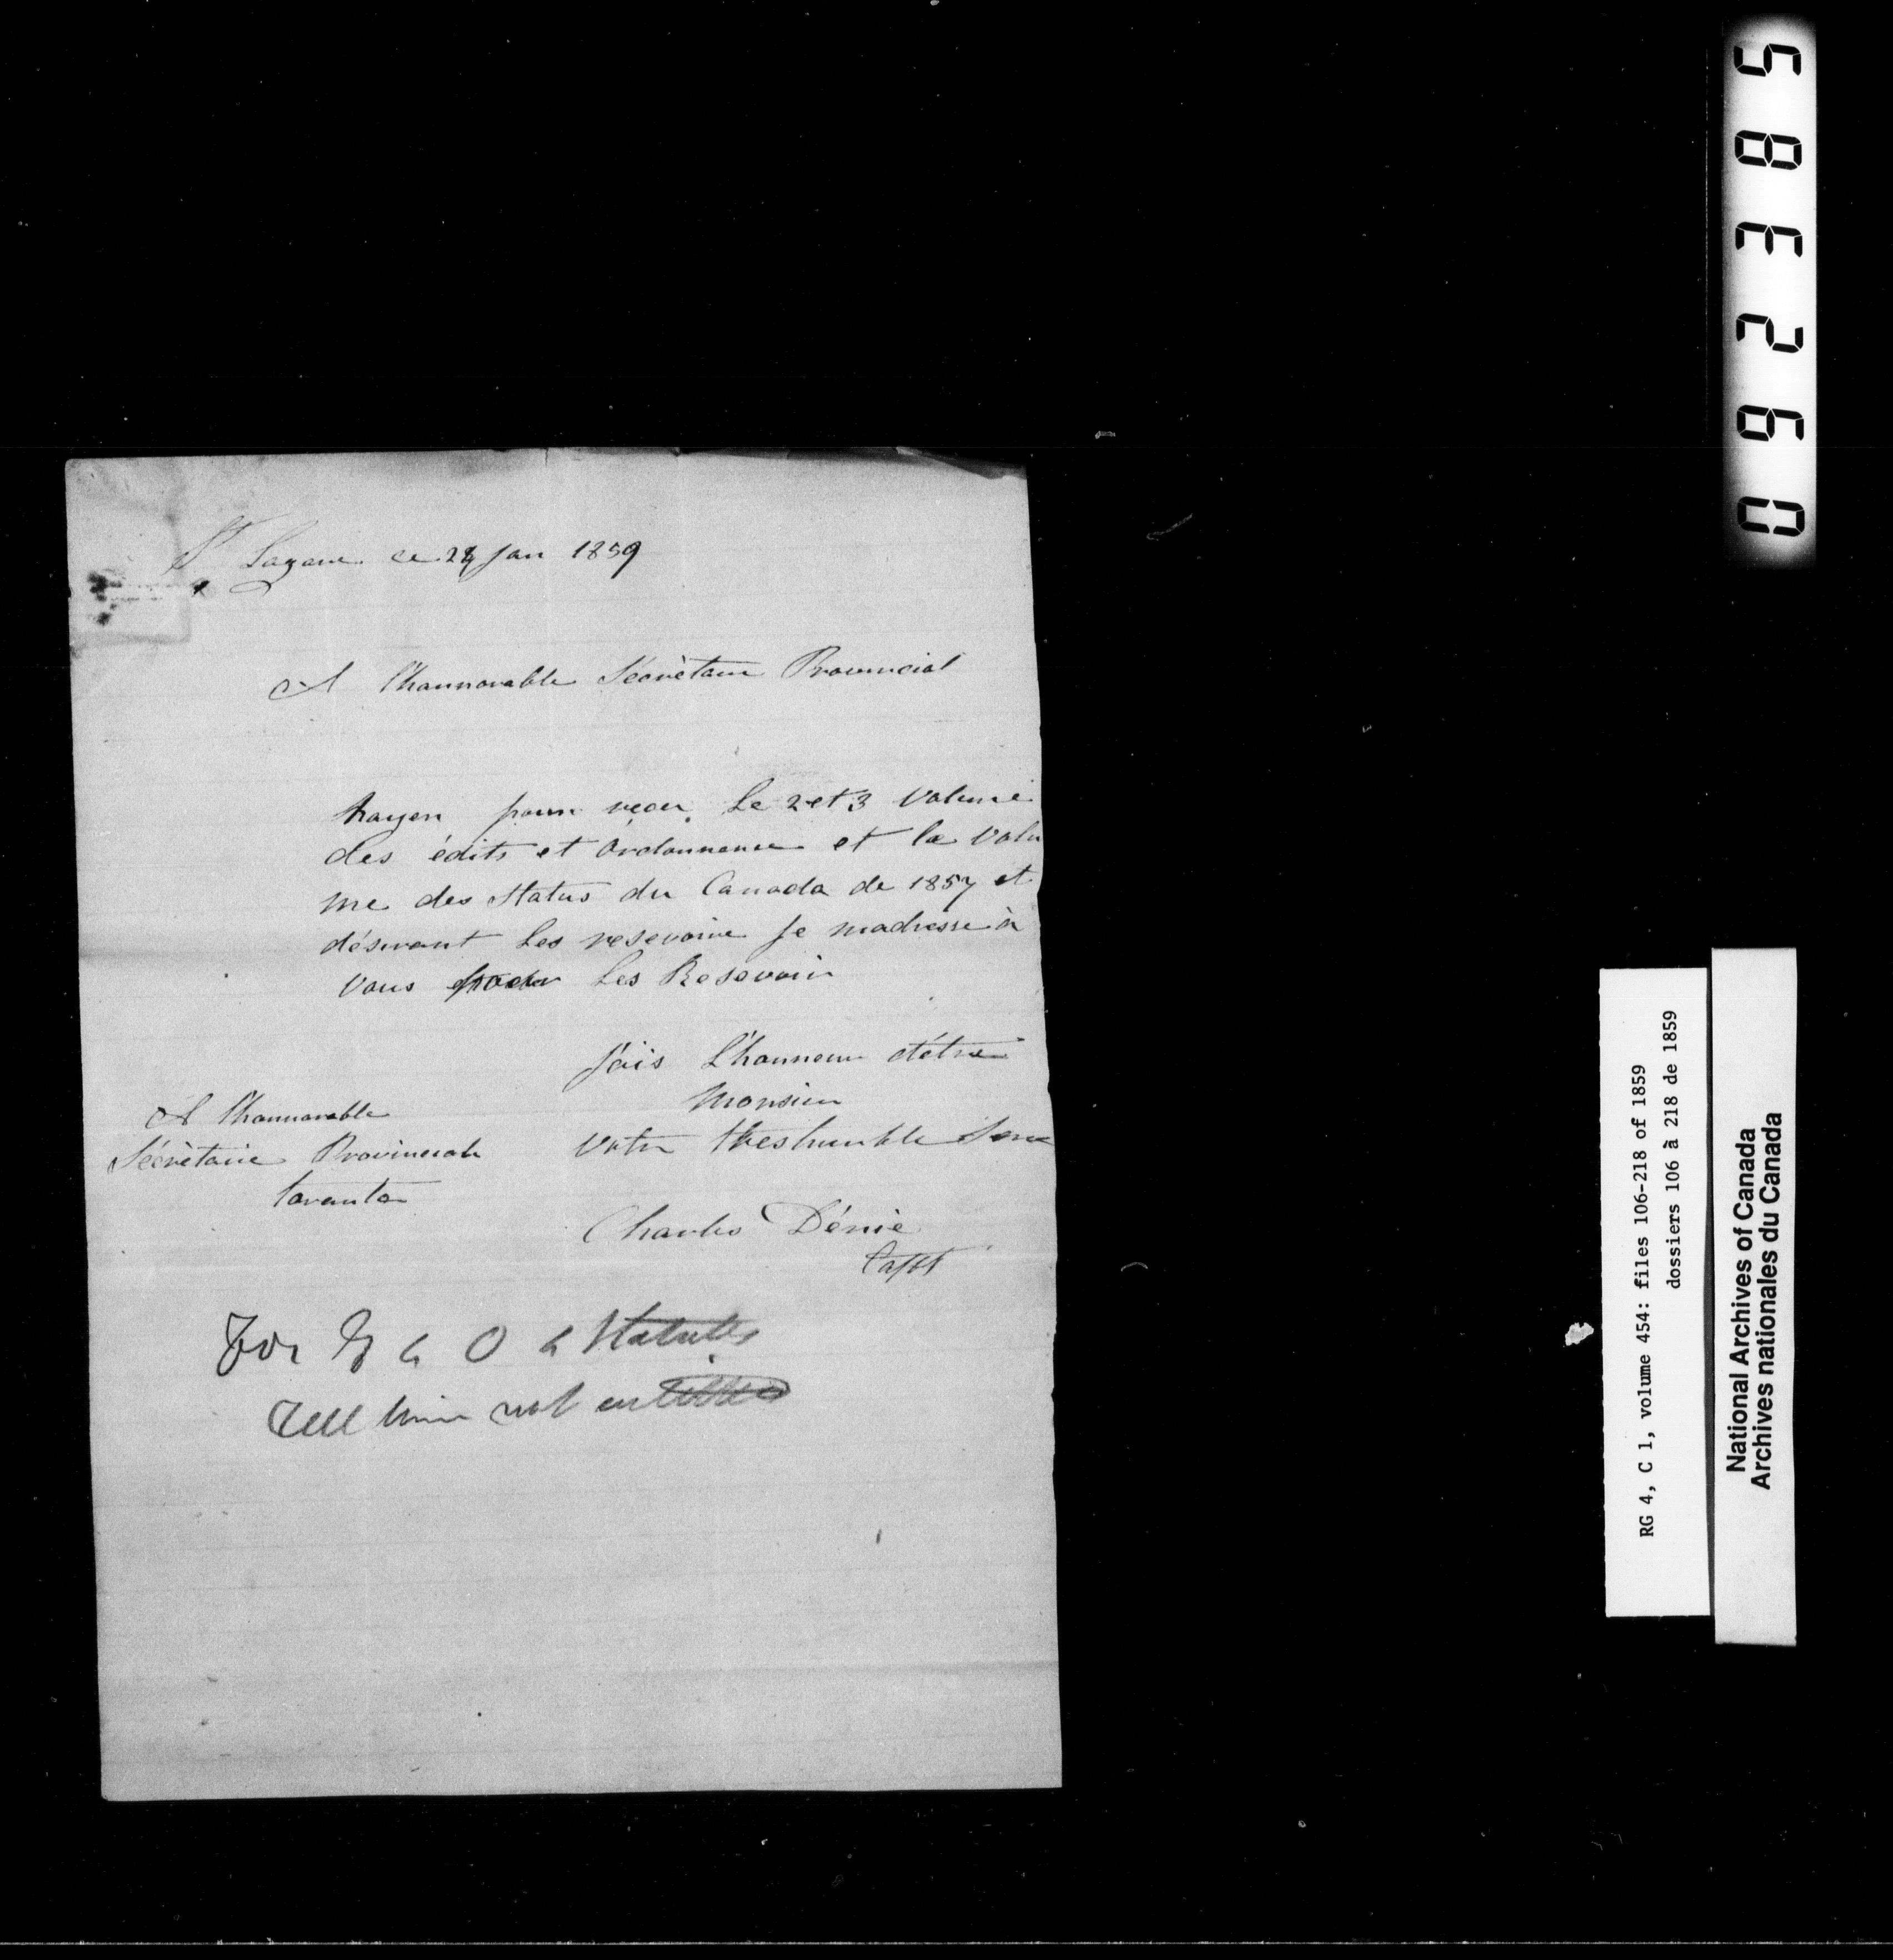 St Lazare ce 28 Jan 1859
A l'hannorable Sécrètaire Provincial
hayen pour reçu Le 2 et 3 Volume
des édits et Ordonnance et le Volu
me des Status du Canada de 1857 et
désirant Les resevoire Je madresse à
vous pour Les Resevoir
J'ais L'honneur d'étre
Monsieur
Votrethreshumble Serv
A l'hannorable
Sécrètaire Provinciale
toranto
Charles Dénie
Capt
For E & O & Statutes
Tell him not entitled
RG 4, C 1, volume 454: files 106-218 of 1859
dossiers 106 à 218 de 1859
National Archives of Canada
Archives nationales du Canada
583260